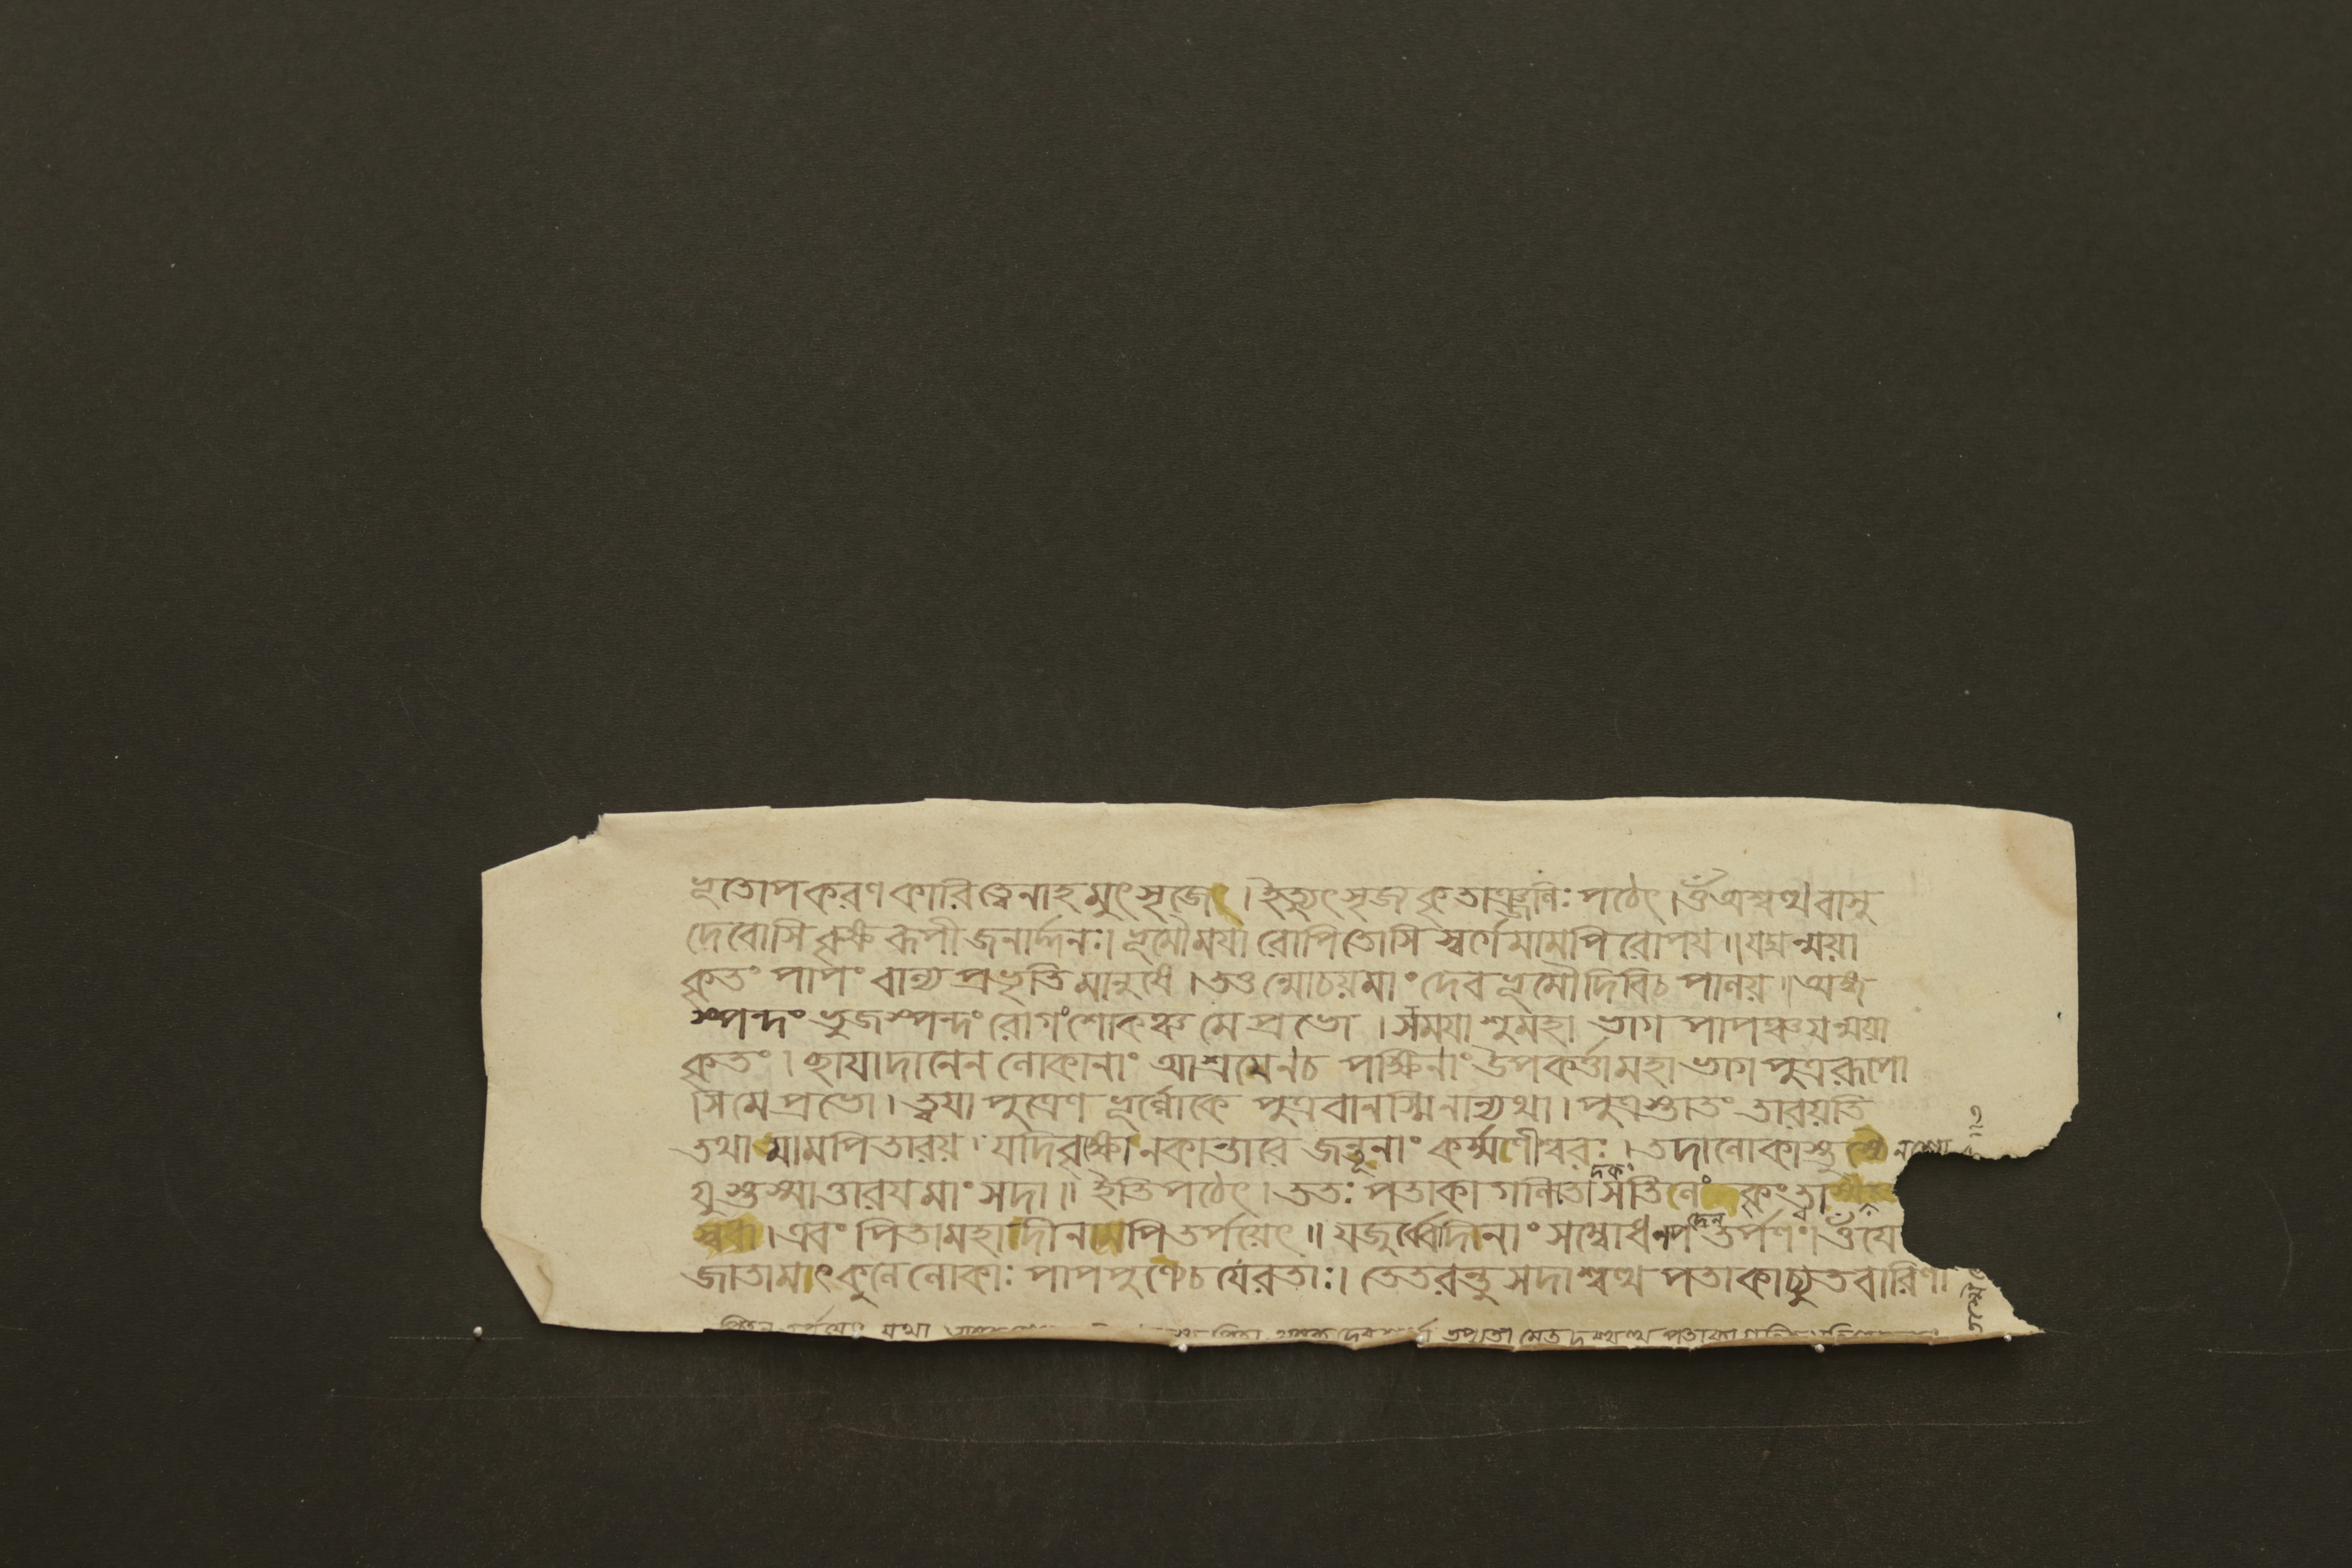 ভূতোপকরণকারিত্বেনাহমুৎসৃজেৎ। ইত্যুৎসৃজ কৃতাঞ্জলিঃ পঠেৎ। ওঁ অশ্বত্থ বাসু
দেবোসি বৃক্ষরূপী জনার্দ্দনঃ। ভূমৌ ময়া রোপিতোসি স্বর্গে মামপি রোপয়॥ যদ্যন্ময়া
কৃতং পাপং বাল্য প্রভৃতি মানুষে। তত্তন্মোচয় মাং দেব ভূমৌ দিবি চ পালয়॥ অক্ষ
স্পন্দং ভুজস্পন্দং রোগং শোকঞ্চ মে প্রভো। সময়াশু মহাভাগ পাপঞ্চ যন্ময়া
কৃতং। ছায়াদানেন লোকানাং আশ্রমেন চ পক্ষিনাং উপকর্ত্তা মহাভাগ পুত্ররূপো
সি মে প্রভো। ত্বয়া পুত্রেণ ভূর্ল্লোকে পুত্রবানস্মি নান্যথা। পুত্রস্তাতং তারয়তি
তথা মামপি তারয়। যদি বৃক্ষো নকান্তারে জন্তূনাং কর্ম্মণীশ্বরঃ। তদা লোকাস্তু
যুস্তস্মাত্তারয় মাং সদা॥ ইতি পঠেৎ। ততঃ পতাকা গলিতা সতিলোদকং
স্বধা। এবং পিতামহাদীনামপি তর্পয়েৎ॥ যজুর্ব্বেদিনাং সম্বোধনপদেন তর্পণং। ওঁ যে
জাতামাৎকুলে লোকাঃ পাপপুণ্যে চ যে রতাঃ। তে তরন্তু সদাশ্বত্থ পতাকাচ্যুতবারিণা